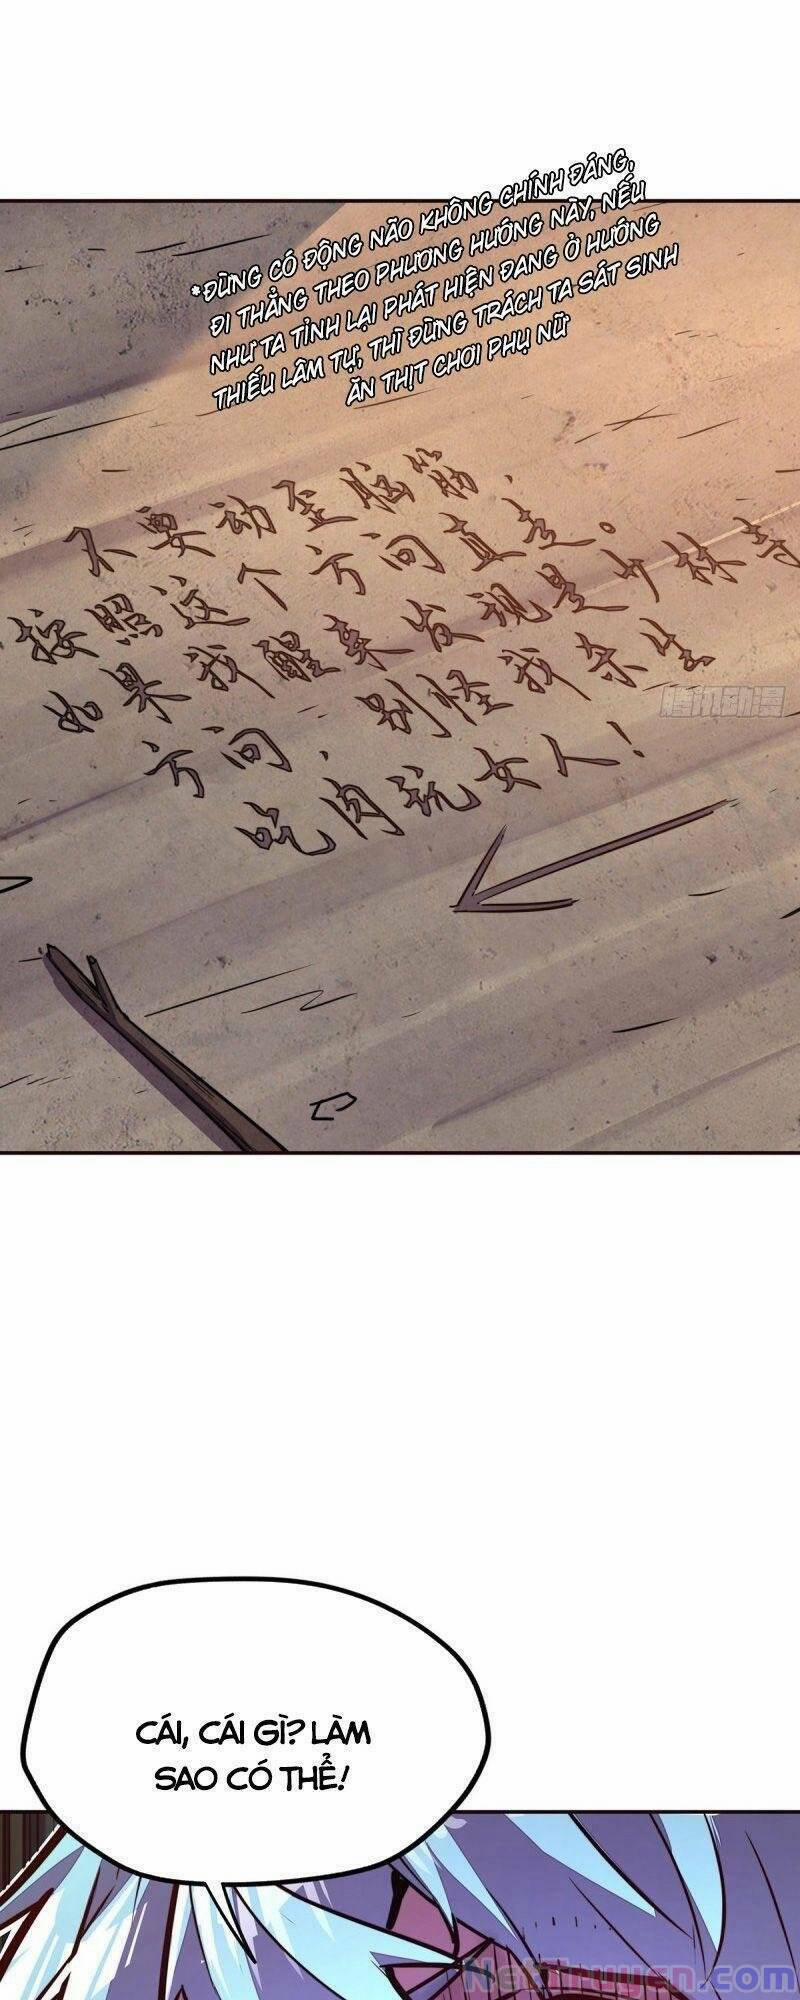 *ĐỪNG CÓ ĐỘNG NÃO KHÔNG CHÍNH ĐÁNG,
ĐI THẲNG THEO PHƯƠNG HƯỚNG NÀY, NẾU
NHƯ TA TỈNH LẠI PHÁT HIỆN ĐANG Ở HƯỚNG
THIẾU LÂM TỰ, THÌ ĐỪNG TRÁCH TA SÁT SINH
ĂN THỊT CHƠI PHỤ NỮ
不要动歪脑筋.
按照这个方向直走。
如果我醒来发现是少林寺
方向,别怪我杀生
吃肉玩女人!
腾讯动漫
CÁI, CÁI GÌ? LÀM
SAO CÓ THỂ!
NetTruyen.com